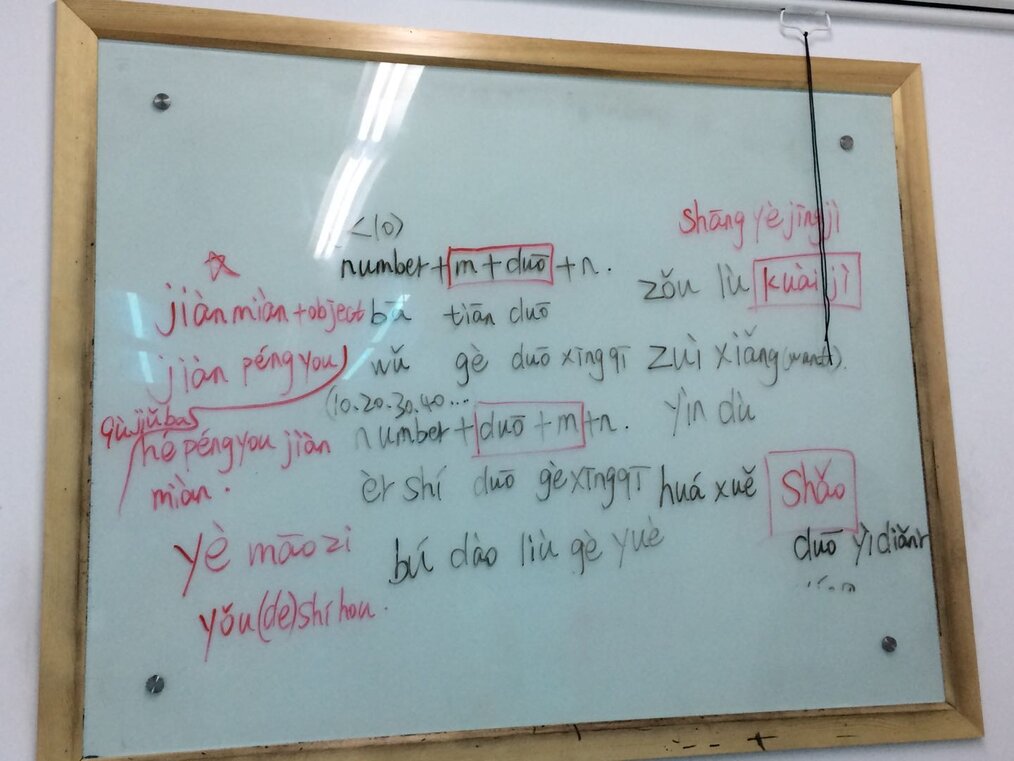 <10)
number + m + duō + n.
bā tiān duō
wǔ gè duō xīngqī
(10.20.30.40...
number + duō + m + n.
èr shí duō gè xīngqī
bú dào liù gè yuè
☆
jiànmiàn + object
jiàn péngyou
qù jiǔba
hé péngyou jiàn
miàn.
yè māozi
yǒu(de)shíhou.
shāng yè jīng jì
zǒu lù kuài jì
zuì xiǎng
yìn dù
huá xuě shǎo
duō yìdiǎnr